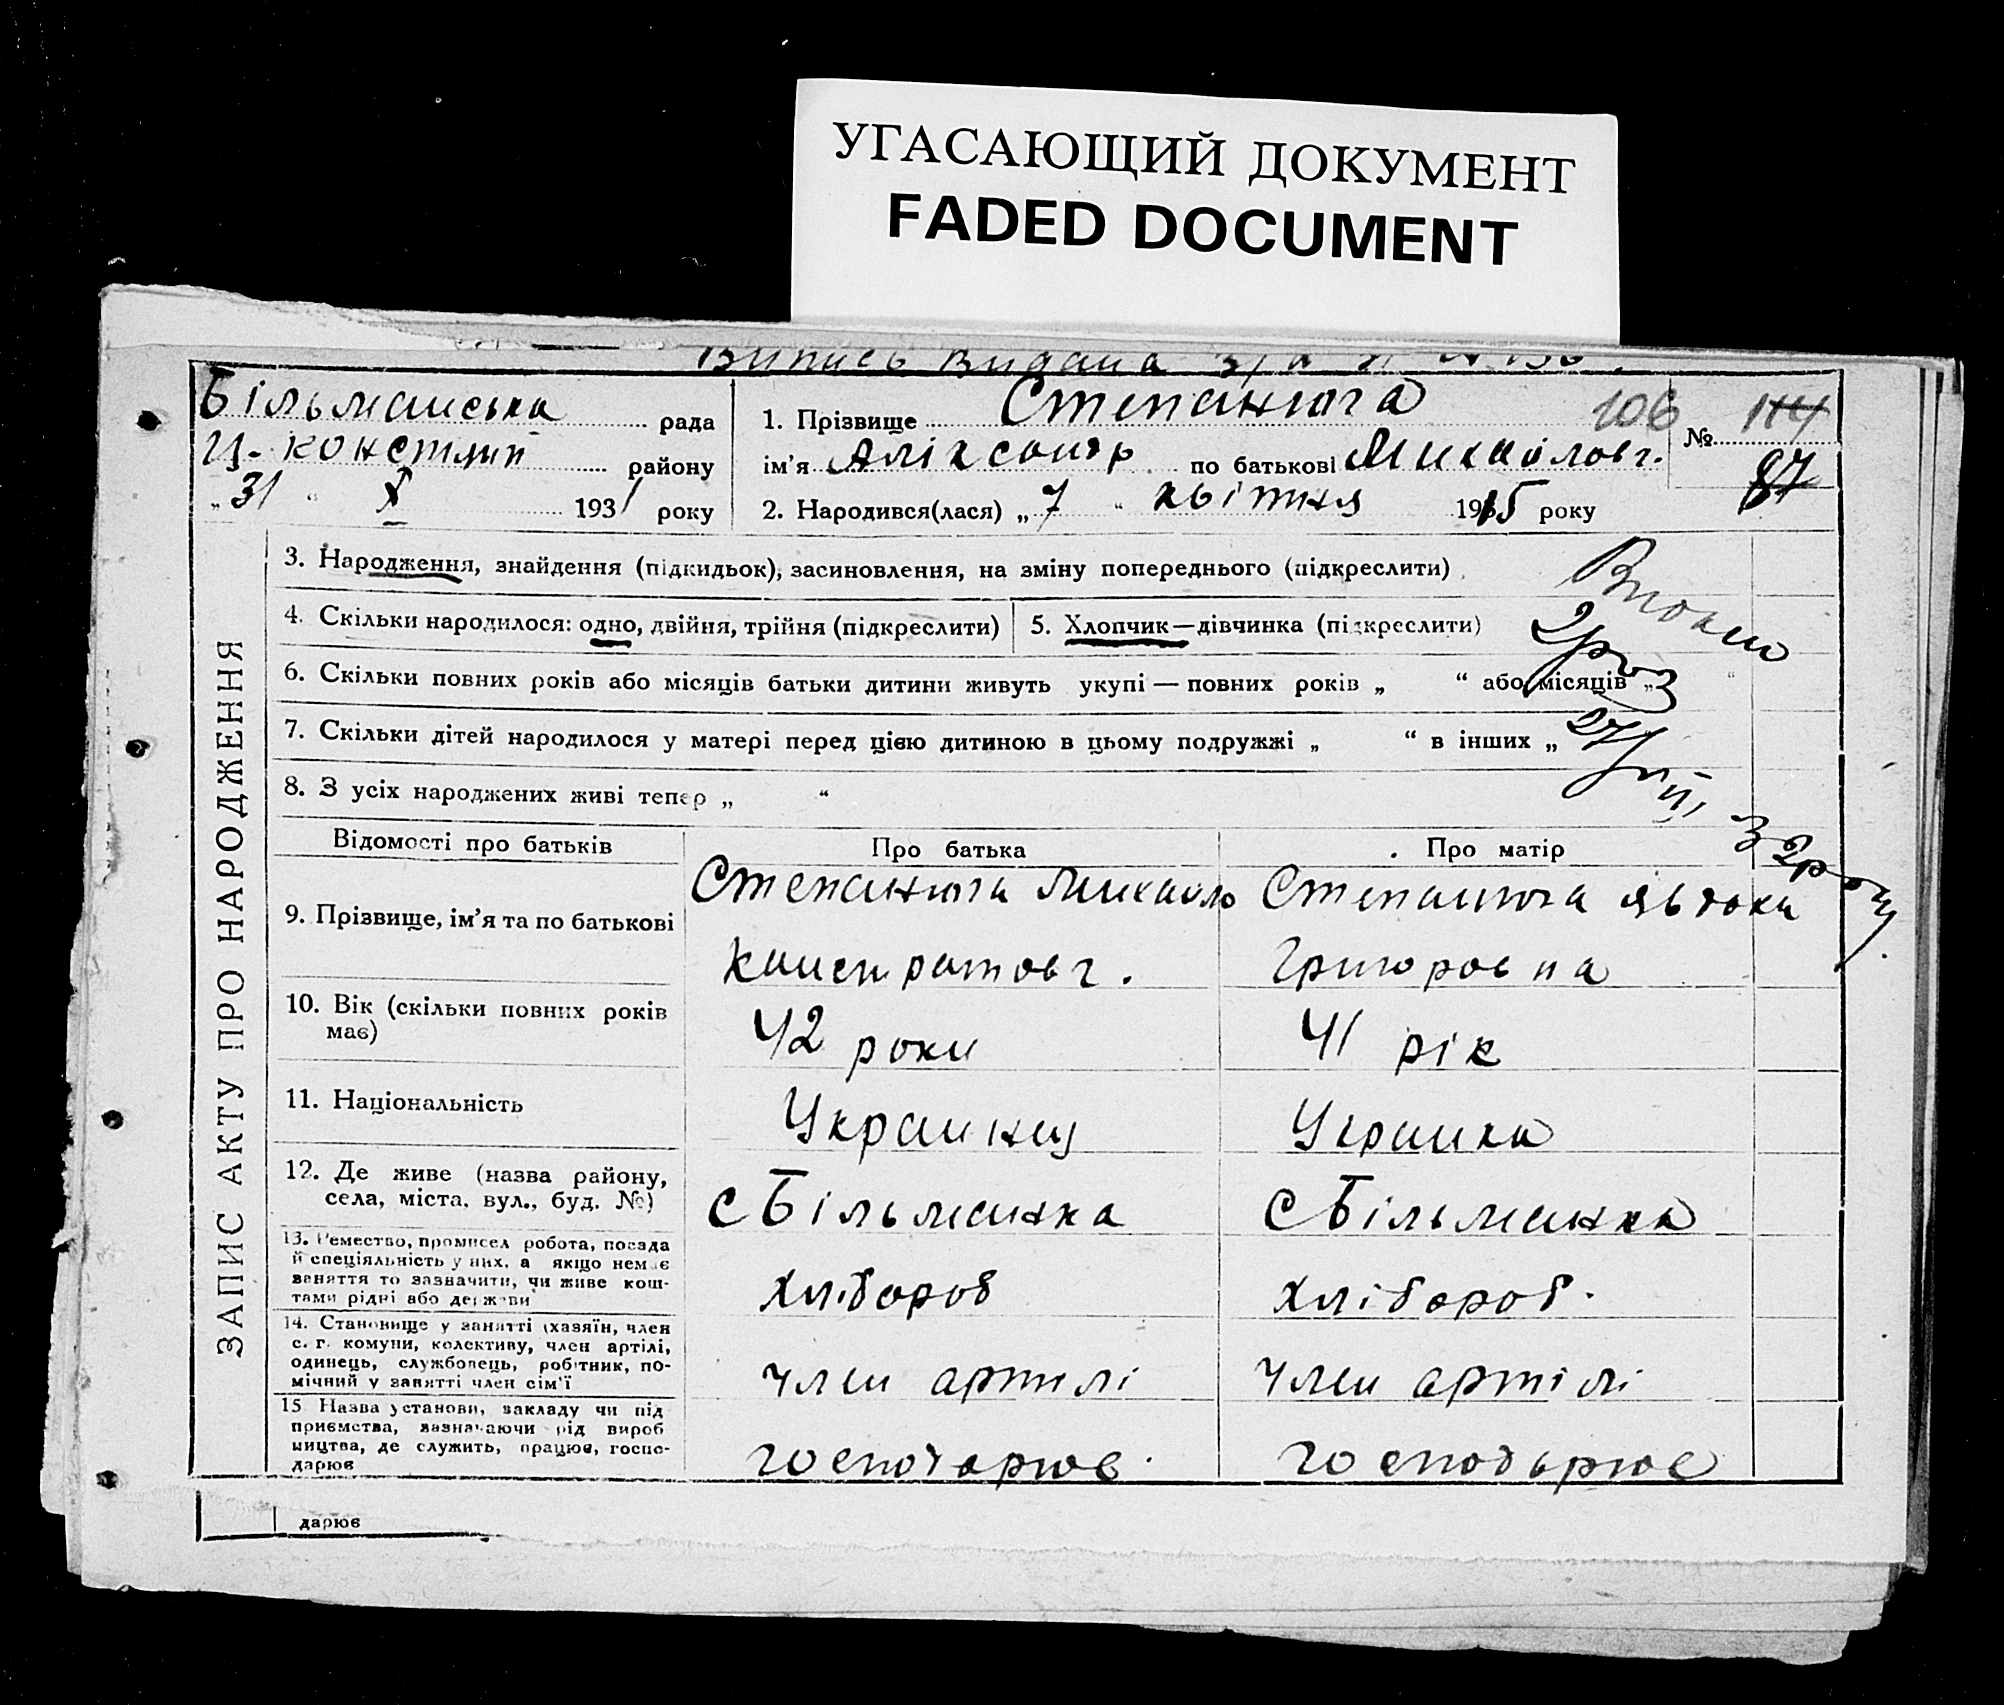 УГАСАЮЩИЙ ДОКУМЕНТ
FADED DOCUMENT
Випись видана
Більманська рада
Ц-констянт району
„31“ X 1931 року
1. Прізвище Степанюга
ім'я Аліксандр по батькові Михайлович.
2. Народився(лася) „7“ квітня 1915 року
106 № 114
87
ЗАПИС АКТУ ПРО НАРОДЖЕННЯ
3. Народження, знайдення (підкидьок), засиновлення, на зміну попереднього (підкреслити)
4. Скільки народилося: одно, двійня, трійня (підкреслити)
5. Хлопчик—дівчинка (підкреслити)
6. Скільки повних років або місяців батьки дитини живуть укупі — повних років „ “ або місяців „ “
7. Скільки дітей народилося у матері перед цією дитиною в цьому подружжі „ “ в інших „
8. З усіх народжених живі тепер „ “
Відомості про батьків
Про батька
Про матір
9. Прізвище, ім'я та по батькові
Степанюга Михайло
Степанюга Явдоха
Григоровна
10. Вік (скільки повних років
має)
42 роки
41 рік
11. Національність
Украинец
Украинка
12. Де живе (назва району,
села, міста, вул., буд. №)
с Більманка
с Більманка
13. Ремество, промисел робота, посада
й спеціяльність у них, а якщо немає
заняття то зазначити, чи живе кош-
тами рідні або держави
хлібороб
хлібороб.
14. Становище у занятті (хазяїн, член
с. г. комуни, колективу, член артілі,
одинець, службовець, робітник, по-
мічний у занятті член сім'ї
член артилі
член артілі
15. Назва установи, закладу чи під
приємства, зазначаючи рід вироб
ництва, де служить, працює, госпо-
дарює
господарює.
господарює
дарює